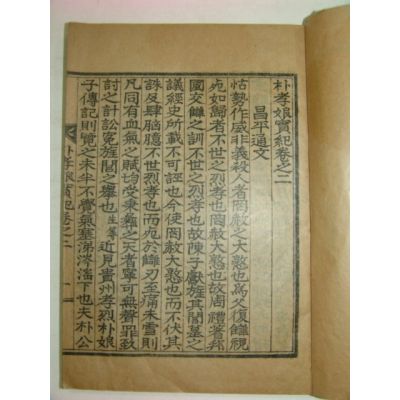 朴孝娘實紀卷之二
昌平通文
怙勢作威非義殺人者罔赦之大憝也爲父復讎視
死如歸者不世之烈孝也罔赦大憝也故周禮著邦
國交讎之訓不世之烈孝也故陳子獻旌其閭墓之
議經史所載不可誣也今使罔赦大憝也而不伏其
誅反肆腦臆不世烈孝也而死於讎刃至痛未雪則
凡同有血氣之賦均受秉彝之天者寧可無聲罪致
討之計訟寃旌閭之擧也生等近見貴州孝烈朴娘
子傳記則覽之未半不覺氣塞涕滂滂下也夫朴公
朴孝娘實紀卷之二 一